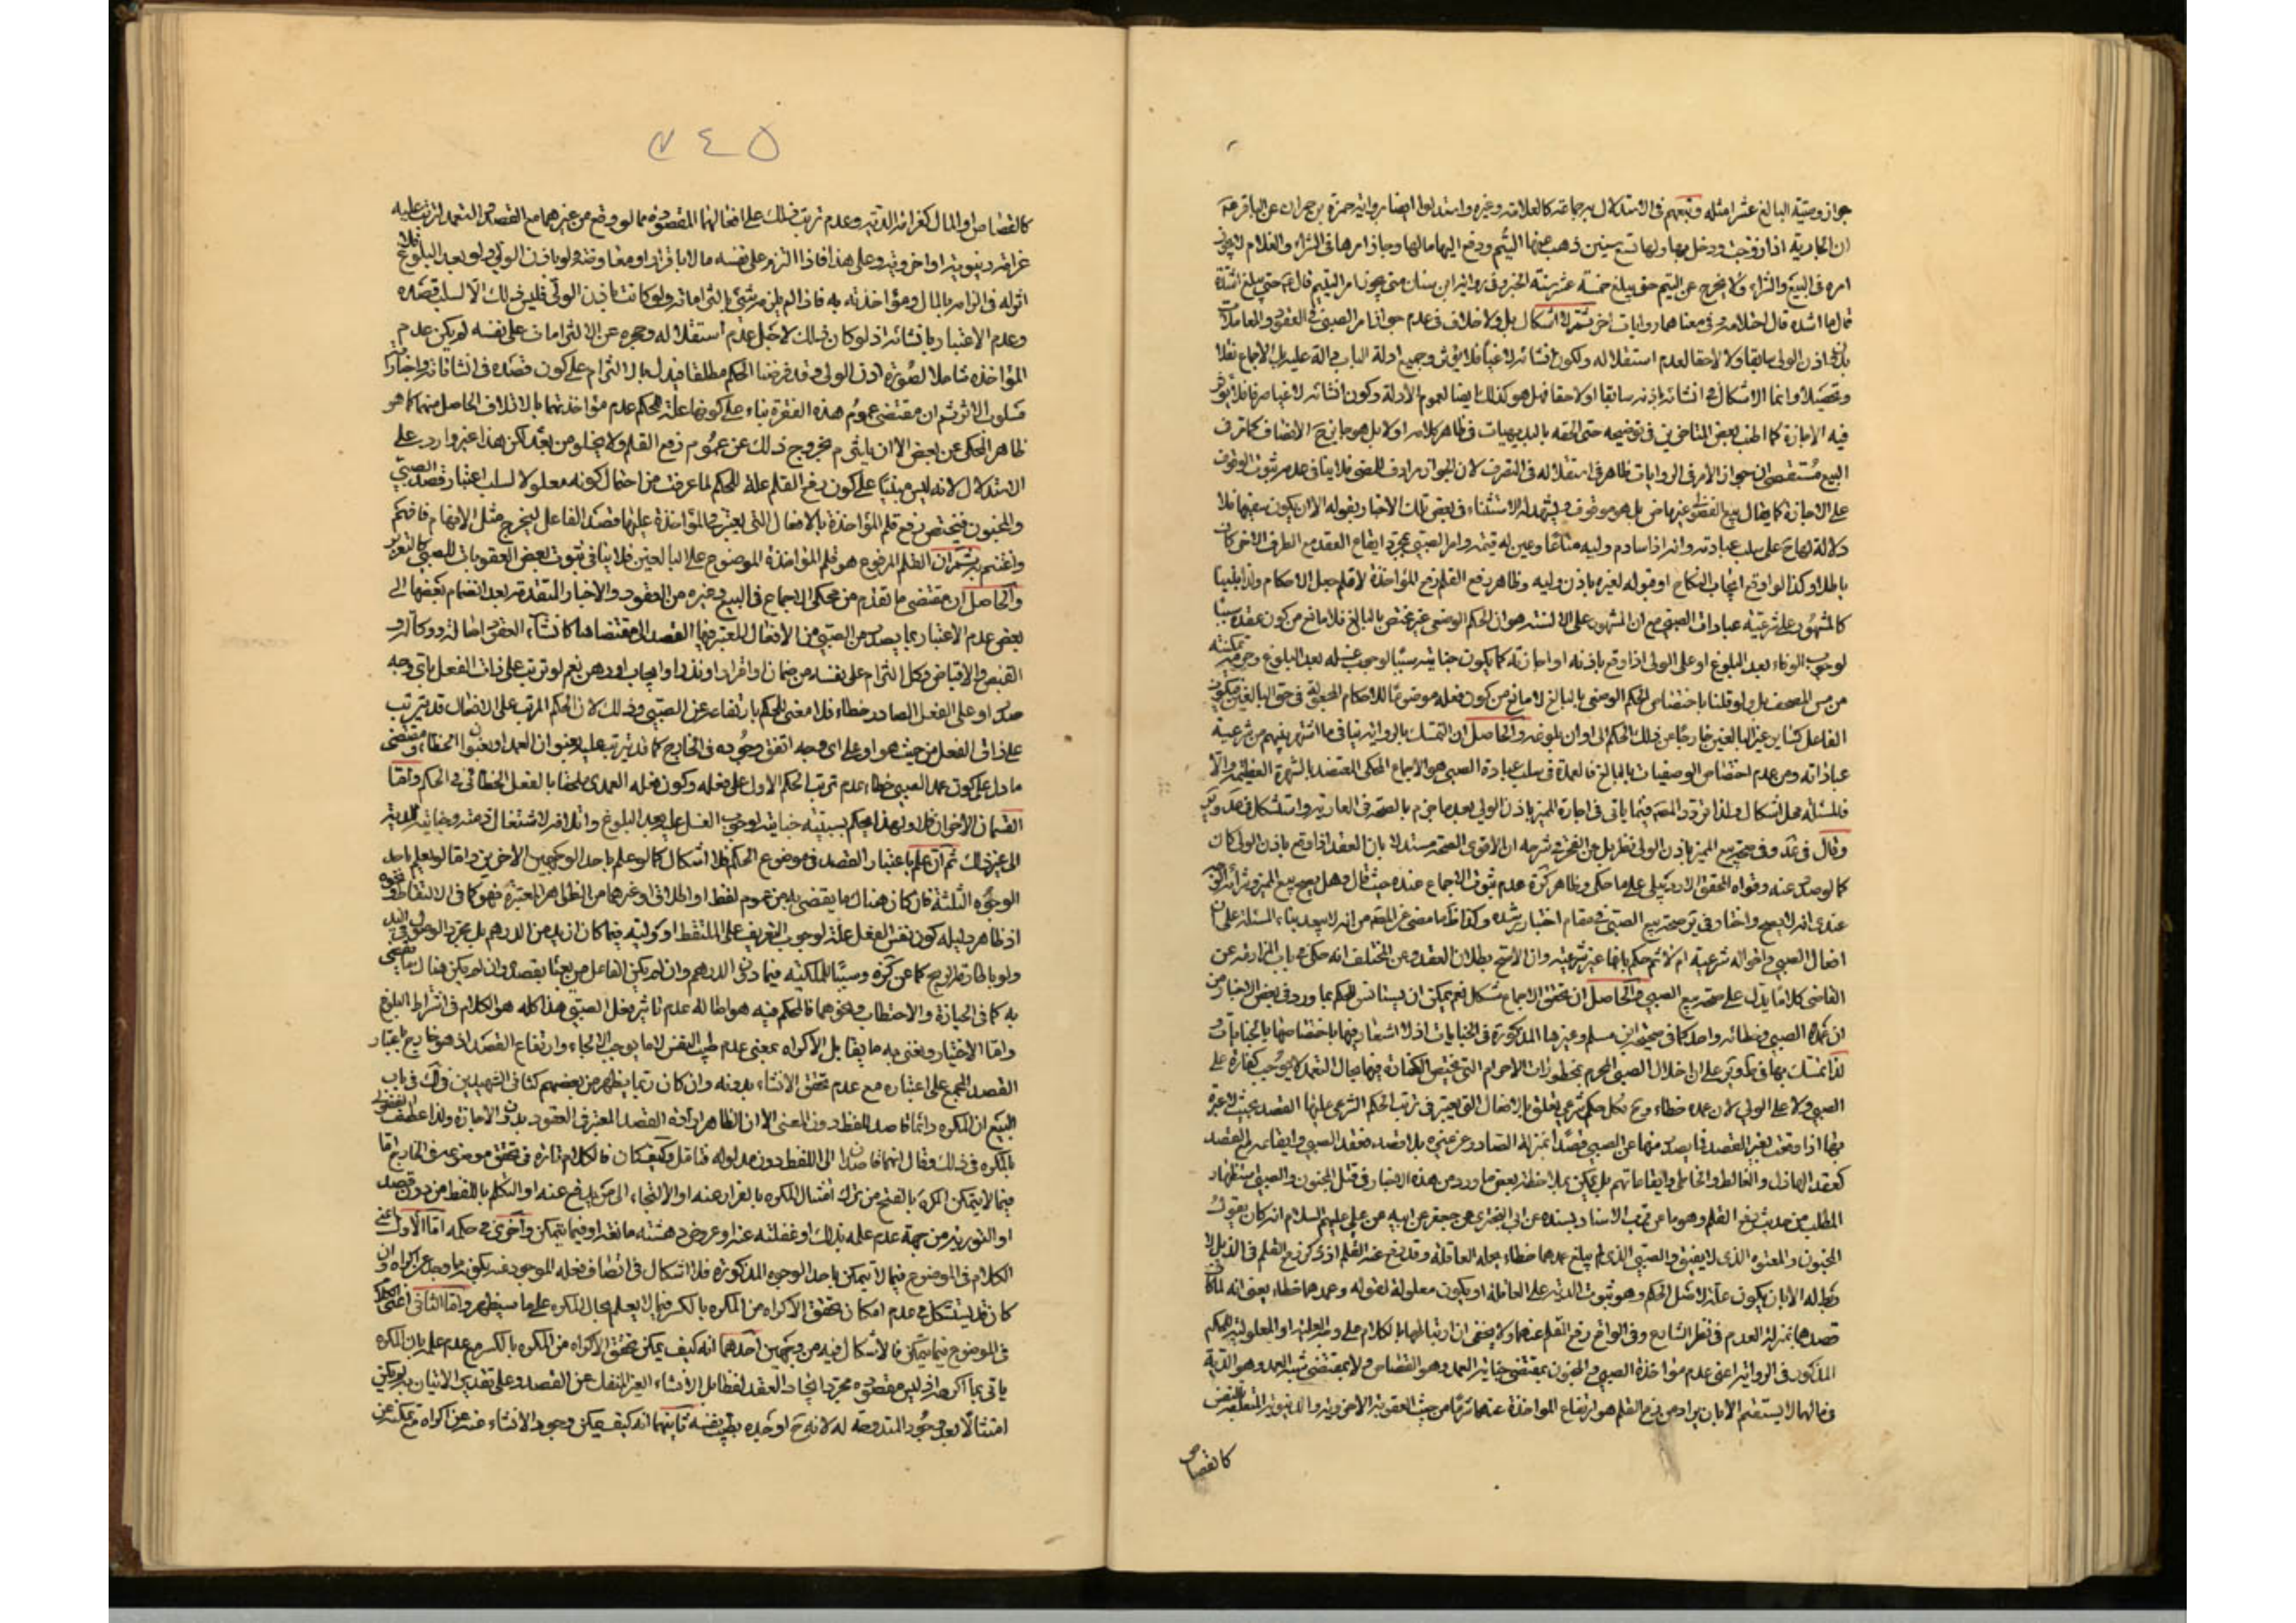 جواز وصية البالغ عشرا مثله وتبعهم في الاستدلال به جماعة كالعلامة وغيره واستدلوا ايضا برواية حمزة بن حمران عن الباقر ع
ان الجارية اذا زوجت ودخل بها ولها تسع سنين ذهب عنها اليتم ودفع اليها مالها وجاز امرها في الشراء والغلام لا يجوز
امره في البيع والشراء ولا يخرج عن اليتم حتى يبلغ خمسة عشر سنة الخبر وفي رواية ابن سنان متى يجوز امر اليتيم قال ع حتى يبلغ اشده
قال ما اشده قال احتلامه وفي معناهما روايات اخر ثم لا اشكال بل ولا خلاف في عدم جواز امر الصبي في العقود والمعاملات
بدون اذن الولي سابقا ولا لاحقا لعدم استقلاله ولكون انشائه لاغيا فلا يؤثر وجميع ادلة الباب دالة عليه بل الاجماع نقلا
وتحصيلا وانما الاشكال في انشائه باذنه سابقا او لاحقا فهل هو كذلك ايضا لعموم الادلة وكون انشائه لاغيا صرفا فلا يؤثر
فيه الاجازة كما اطنب بعض المتاخرين في توضيحه حتى الحقه بالبديهيات في ظاهر كلامه اولا بل هو جايز ح الانصاف كما ترف
البيع مستقصى ان جواز الامر في الروايات ظاهر في استقلاله في التصرف لان الجواز مرادف للمضي فلا ينافي عدمه ثبوت الوقوف
على الاجازة كما يقال بيع الفضولي غير ماض بل هو موقوف ويشهد له الاستثناء في بعض تلك الاخبار بقوله الا ان يكون سفيها فلا
دلالة لها ح على سلب عبادته وانه اذا ساوم وليه متاعا وعين له قيمته وامر الصبي بمجرد ايقاع العقد مع الطرف الاخر كان
باطلا وكذا لو اوقع ايجاب النكاح او قبوله لغيره باذن وليه وظاهر رفع القلم رفع المؤاخذة لا قلم جعل الاحكام ولذا بنينا
كالمشهور على شرعية عبادات الصبي مع ان المشهور على الالسنة هو ان الحكم الوضعي غير مختص بالبالغ فلا مانع من كون عقده سببا
لوجوب الوفاء بعد البلوغ او على الولي اذا وقع باذنه او اجازته كما يكون جنابته سببا لوجوب غسله بعد البلوغ وحرمة تمكينه
من مس المصحف بل ولو قلنا باختصاص الحكم الوضعي بالبالغ لا مانع من كون فعله موضوعا للاحكام المجعولة في حق البالغين فيكون
الفاعل كسائر غير البالغين خارجا عن ذلك الحكم الى اوان بلوغه والحاصل ان التمسك بالرواية ينافي ما اشتهر بينهم من شرعية
عباداته ومن عدم اختصاص الوضعيات بالبالغ فالعمدة في سلب عبارة الصبي هو الاجماع المحكي المعتضد بالشهرة العظيمة والا
فالمسئلة محل اشكال ولذا تردد المصم فيما ياتي في اجارة المميز باذن الولي بعد ما جزم بالصحة في العارية واستشكل في عد وير
وقال في عد وفي صحة بيع المميز باذن الولي نظر بل عن الفخر في شرحه ان الاقوى الصحة مستدلا بان العقد اذا وقع باذن الولي كان
كما لو صدر عنه وقواه المحقق الاردبيلي على ما حكى وظاهر كره عدم ثبوت الاجماع عنده حيث قال وهل يصح بيع المميز وشرائه الوجه
عندي انه لا يصح واختار في ير صحة بيع الصبي في مقام اختبار رشده وكذا
افعال الصبي واقواله شرعية ام لا ثم حكم بانها غير شرعية وان الاصح بطلان العقد وعن المختلف انه حكى في باب المزارعة عن
القاضي كلاما يدل على صحة بيع الصبي والحاصل ان تحقق الاجماع مشكل نعم يمكن ان يستانس للحكم بما ورد في بعض الاخبار من
ان عمد الصبي وخطائه واحد كما في صحيحة ابن مسلم وغيرها المذكورة في الجنايات اذ لا اشعار فيها باختصاصها بالجنايات و
لذا تمسك بها في ط وير على ان اخلال الصبي المحرم بمحظورات الاحرام التي يختص الكفارة فيها بحال التعمد لا يوجب كفارة على
الصبي ولا على الولي لان عمده خطاء وح فكل حكم شرعي تعلق بالافعال التي يعتبر في ترتب الحكم الشرعي عليها القصد بحيث لا عبرة
بها اذا وقعت بغير القصد فما يصدر منها عن الصبي قصدا بمنزلة الصادر عن غيره بلا قصد فعقد الصبي وايقاعه مع القصد
كعقد الهازل والغالط والخاطي وايقاعاتهم بل يمكن بملاحظة بعض ما ورد من هذه الاخبار في قتل المجنون والصبي استظهار
المطلب من حديث رفع القلم وهو ما عن قرب الاسناد بسنده عن ابي البختري عن جعفر عن ابيه عن علي عليهم السلام انه كان يقول
المجنون والمعتوه الذي لا يفيق والصبي الذي لم يبلغ عمدهما خطاء يحمله العاقلة وقد رفع عنهما القلم اذ ذكر رفع القلم في الذيل لا
ربط له الا بان يكون علة لاصل الحكم وهو ثبوت الدية على العاقلة او يكون معلولة لقوله وعمدهما خطاء يعني انه لما كان
قصدهما بمنزلة العدم في نظر الشارع وفي الواقع رفع القلم عنهما ولا يخفى ان ارتباطهما بالكلام على وجه العلية او المعلولية للحكم
المذكور في الرواية اعني عدم مؤاخذة الصبي والمجنون بمقتضى جناية العمد وهو القصاص ولا بمقتضى شبه العمد وهو الدية
في مالهما لا يستقيم الا بان يراد من رفع القلم هو ارتفاع المؤاخذة عنهما شرعا من حيث العقوبة الاخروية والدنيوية المتعلقة بالنفس
كالقصاص
٧٤٥
كالقصاص او المال كغرامة الدية وعدم ترتب ذلك على افعالهما المقصودة مما لو وقع من غيرهما مع القصد والتعمد لترتب عليه
غرامة دنيوية او اخروية وعلى هذا فاذا التزم على نفسه مالا باقرار او معاوضة ولو باذن الولي ولو بعد البلوغ فلا
اثر له في الزامه بالمال ومؤاخذته به فاذا لم يلزمه شيء بالتزاماته ولو كانت باذن الولي فليس ذلك الا لسلب قصده
وعدم الاعتبار بانشائه اذ لو كان ذلك لاجل عدم استقلاله وحجره عن الالتزامات على نفسه لم يكن عدم
المؤاخذة شاملا لصورة اذن الولي وقد فرضنا الحكم مطلقا فيدل بالالتزام على كون قصده في انشاءاته واخباراته
مسلوب الاثر ثم ان مقتضى عموم هذه الفقرة بناء على كونها علة للحكم عدم مؤاخذتهما بالاتلاف الحاصل منهما كما هو
ظاهر المحكي عن بعض الا ان يلتزم بخروج ذلك عن عموم رفع القلم ولا يخلو من بعد لكن هذا غير وارد على
الاستدلال لانه ليس مبنيا على كون رفع القلم علة للحكم لما عرفت من احتمال كونه معلولا لسلب اعتبار قصد الصبي
والمجنون فيختص رفع قلم المؤاخذة بالافعال التي يعتبر في المؤاخذة عليها قصد الفاعل ليخرج مثل الاتلاف فافهم
واغتنم ثم ان القلم المرفوع هو قلم المؤاخذة الموضوع على البالغين فلا ينافي ثبوت بعض العقوبات للصبي كالتعزير
والحاصل ان مقتضى ما تقدم من محكي الاجماع في البيع وغيره من العقود والاخبار المتقدمة بعد انضمام بعضها الى
بعض عدم الاعتبار بما يصدر من الصبي من الافعال المعتبر فيها القصد الى مقتضاها كانشاء العقود اصالة ووكالة و
القبض والاقباض وكل التزام على نفسه من ضمان او اقرار او نذر او ايجار نعم لو ترتب على ذات الفعل باي وجه
صدر او على الفعل الصادر خطاء فلا معنى للحكم بارتفاعه عن الصبي وذلك لان الحكم المرتب على الافعال قد يترتب
على ذات الفعل من حيث هو او على اي وجه اتفق وجوده في الخارج كما قد يترتب عليه بعنوان العمد او بعنوان الخطاء ومقتضى
ما دل على كون عمد الصبي خطاء عدم ترتب الحكم الاول على فعله وكون فعله العمدي ملحقا بالفعل الخطائي في الحكم واما
القسمان الاخران فلا ولهذا يحكم بسببية جنابته لوجوب الغسل عليه بعد البلوغ واتلافه لاشتغال ذمته وجنايته للدية
الى غير ذلك ثم ان علم باعتبار القصد في موضوع الحكم فلا اشكال كما لو علم باحد الوجهين الاخرين واما لو لم يعلم باحد
الوجوه الثلثة فان كان هناك ما يقضى به من عموم لفظ او اطلاق او غيرهما من الظواهر المعتبرة فهو كما في الالتقاط ونحوه
اذ ظاهر دليله كون نفس الفعل علة لوجوب التعريف على الملتقط او كوليه فيما كان ازيد من الدرهم بل بمجرد الوقوع في اليد
ولو باطارة الريح كما عن كره وسببا للملكية فيما دون الدرهم وان لم يكن الفاعل من يعبأ بقصده وان لم يكن هناك ما يقضى
به كما في الحيازة والاحتطاب ونحوهما فالحكم فيه هو اصالة عدم تاثير فعل الصبي هذا كله هو الكلام في اشتراط البلوغ
واما الاختيار ونعني به ما يقابل الاكراه بمعنى عدم طيب النفس لا ما يوجب الالجاء وارتفاع القصد اذ هو خارج باعتبار
القصد المجمع على اعتباره مع عدم تحقق الانشاء بدونه وان كان ربما يظهر من بعضهم كثاني الشهيدين في لك في باب
البيع ان المكره دائما قاصد للفظ دون المعنى الا ان الظاهر ارادة القصد المعتبر في العقود بدون الاجازة ولذا عطف الفضولي
بالمكره في ذلك وقال انهما قاصدان الى اللفظ دون مدلوله فتامل وكيف كان فالكلام تارة في تحقق موضوعه في الخارج اما
فيما لا يتمكن المكره بالفتح من ترك امتثال المكره بالفرار عنه او الالتجاء الى من يدفع عنه او التكلم باللفظ من دون قصد
او التورية من جهة عدم علمه بذلك او غفلته عنه او عروض دهشة مانعة او فيما يتمكن واخرى في حكمه اما الاول اعني
الكلام في الموضوع فيما لا يتمكن باحد الوجوه المذكورة فلا اشكال في اتصاف فعله الموجود عنه بكونه ما وجد عن اكراه وان
كان قد يستشكل في عدم امكان تحقق الاكراه من المكره بالكسر فيما لا يعلم بحال المكره على ما سيظهر واما الثاني اعني الكلام
في الموضوع فيما يتمكن فالاشكال فيه من وجهين احدهما انه كيف يمكن تحقق الاكراه من المكره بالكسر مع عدم علمه بان المكره
ياتي بما اكرهه اذ ليس مقصوده مجرد ايجاد العقد لفظا بل الانشاء الغير المنفك عن القصد وعلى تقدير الاتيان به لم يكن
امتثالا بعد وجود المندوحة له لانه ح اوجده بطيب نفسه ثانيهما انه كيف يمكن وجود الانشاء عنه عن اكراه مع تمكنه عن